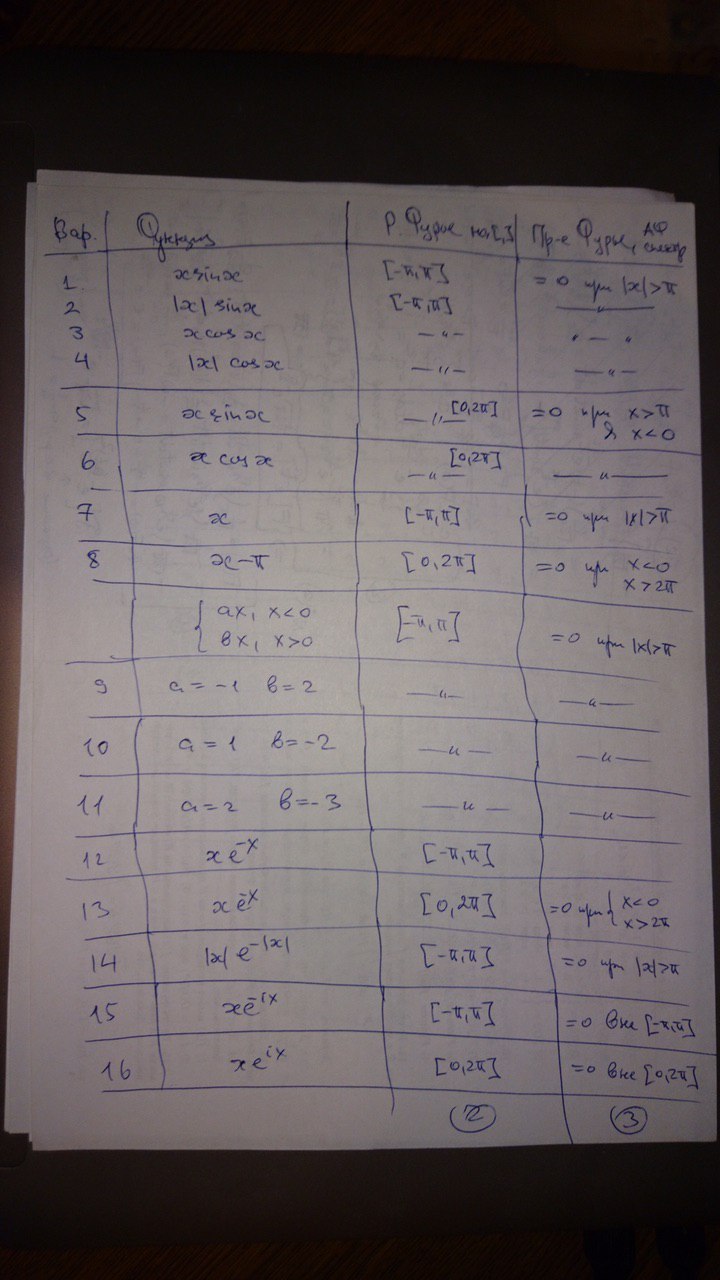 Вар. Функция Р. Фурье на [,] Пр-е Фурье, АФ спектр
1. x sin x [-π,π] =0 при |x|>π
2 |x| sin x [-π,π] —"—
3 x cos x —"— —"—
4 |x| cos x —"— —"—
5 x sin x —"— [0,2π] =0 при x>π
& x<0
6 x cos x —"— [0,2π] —"—
7 x [-π,π] =0 при |x|>π
8 x-π [0,2π] =0 при x<0
x>2π
{ ax, x<0
bx, x>0 [-π,π] =0 при |x|>π
9 a=-1 b=2 —"— —"—
10 a=1 b=-2 —"— —"—
11 a=2 b=-3 —"— —"—
12 xe^{-x} [-π,π]
13 xe^{-x} [0,2π] =0 при { x<0
x>2π
14 |x| e^{-|x|} [-π,π] =0 при |x|>π
15 xe^{-ix} [-π,π] =0 вне [-π,π]
16 xe^{ix} [0,2π] =0 вне [0,2π]
2 3